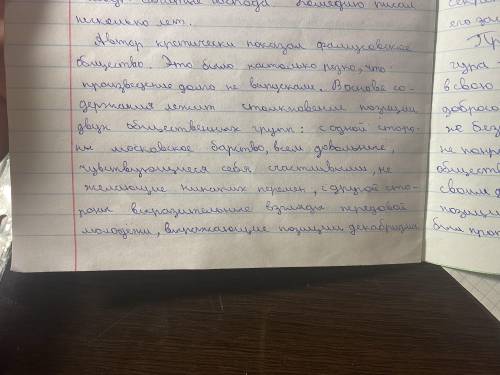 господа Комедию писал
несколько лет.
Автор критически показал фамусовское
общество. Это было настолько резко, что
произведение долго не выпускали. В основе со-
держания лежит столкновение позиции
двух общественных групп: с одной сторо-
ны московское барство, всем довольные,
чувствующиеся себя счастливыми, не
желающие никаких перемен, с другой сто-
роны выразительные взгляды передовой
молодёжи, выражающие позиции декабризма
его
Пр
гура
в свою
добросо
не без
не понра
обществ
своим
позици
был прот